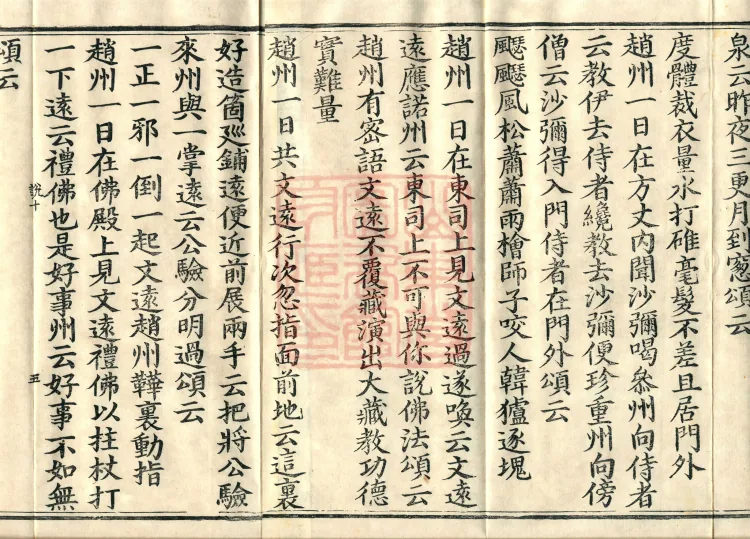 泉云昨夜三更月到窻頌云
度體裁衣量水打碓毫髮不差且居門外
趙州一日在方丈內聞沙彌喝叅州向侍者
云教伊去侍者纔教去沙彌便珍重州向傍
僧云沙彌得入門侍者在門外頌云
颼颼風松蕭蕭雨檜師子咬人韓獹逐塊
趙州一日在東司上見文遠過遂喚云文遠
遠應諾州云東司上不可與你說佛法頌云
趙州有宻語文遠不覆藏演出大藏教功德
實難量
趙州一日共文遠行次忽指面前地云這裏
好造箇廵鋪遠便近前展兩手云把將公驗
來州與一掌遠云公驗分明過頌云
一正一邪一倒一起文遠趙州鞾裏動指
趙州一日在佛殿上見文遠禮佛以拄杖打
一下遠云禮佛也是好事州云好事不如無
說十
五
頌云